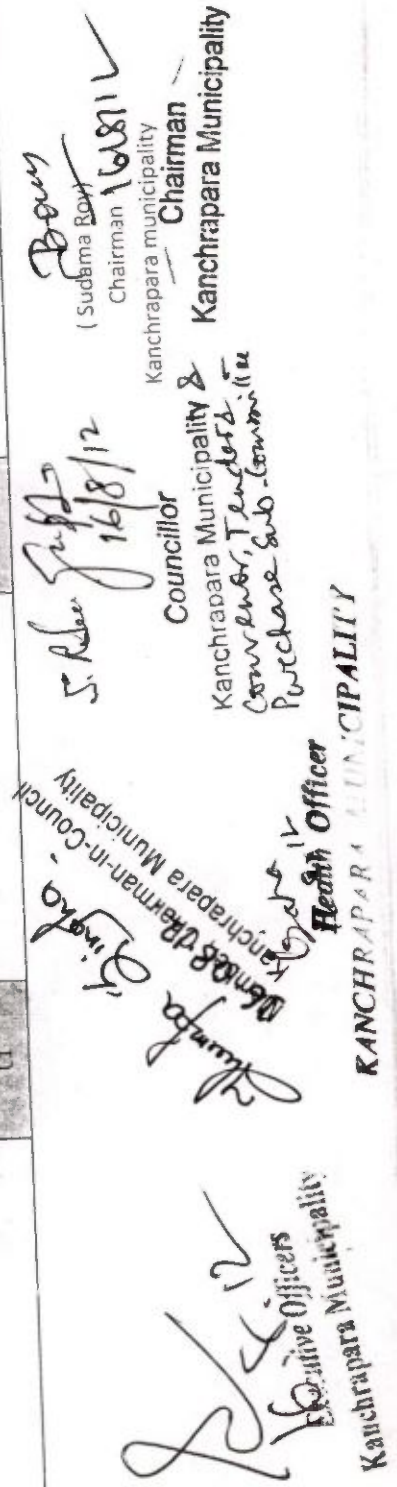 16
12
Executive Officers
Kanchrapara Municipality
Jhumpa Singha
Chairman-in-Council
Kanchrapara Municipality
12
Health Officer
KANCHRAPARA MUNICIPALITY
16/8/12
Councillor
Kanchrapara Municipality &
Convenor, Tender &
Purchase Sub-Committee
( Sudama Roy)
Chairman 16/8/12
Kanchrapara municipality
Chairman
Kanchrapara Municipality